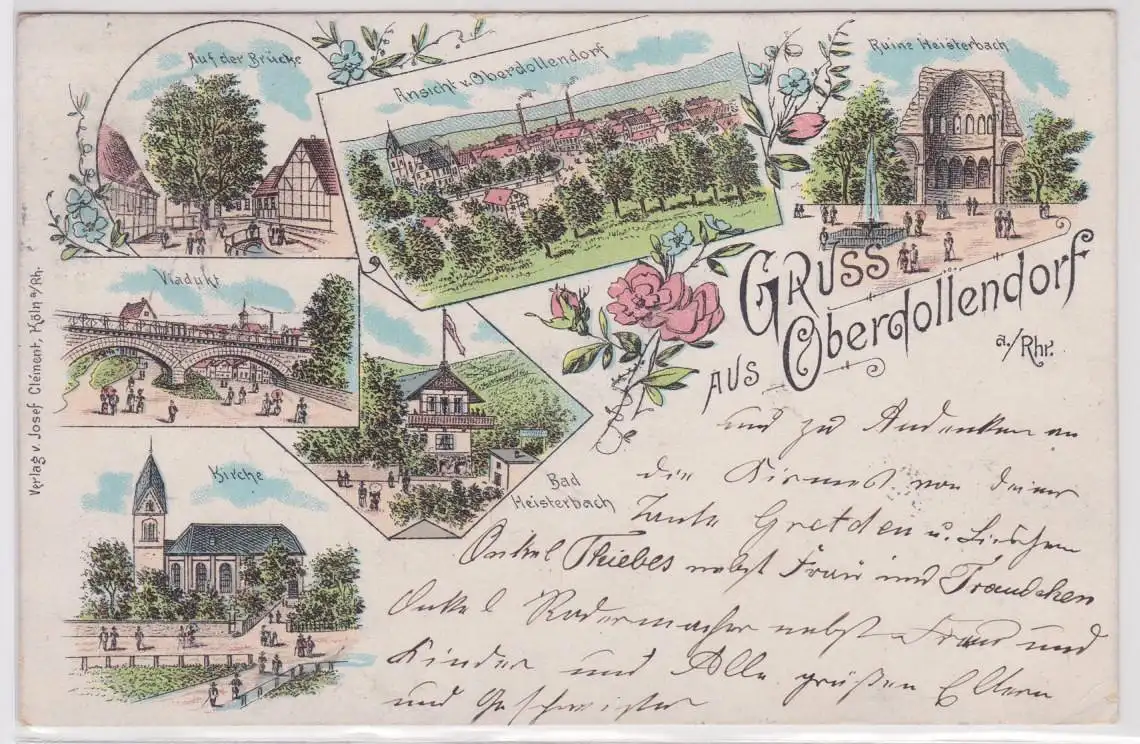 Auf der Brücke
Ansicht v. Oberdollendorf
Ruine Heisterbach
Viadukt
Bad
Heisterbach
Kirche
Verlag v. Josef Clément, Köln a/Rh.
GRUSS
AUS Oberdollendorf
a./Rhr.
und zu Andenken an
die Kirmes von deiner
Tante Gretchen u. Lieschen
Onkel Thiebes nebst Frau und Traudchen
Onkel Radermacher nebst Frau und
Kinder und Alle grüßen Eltern
und Geschwister